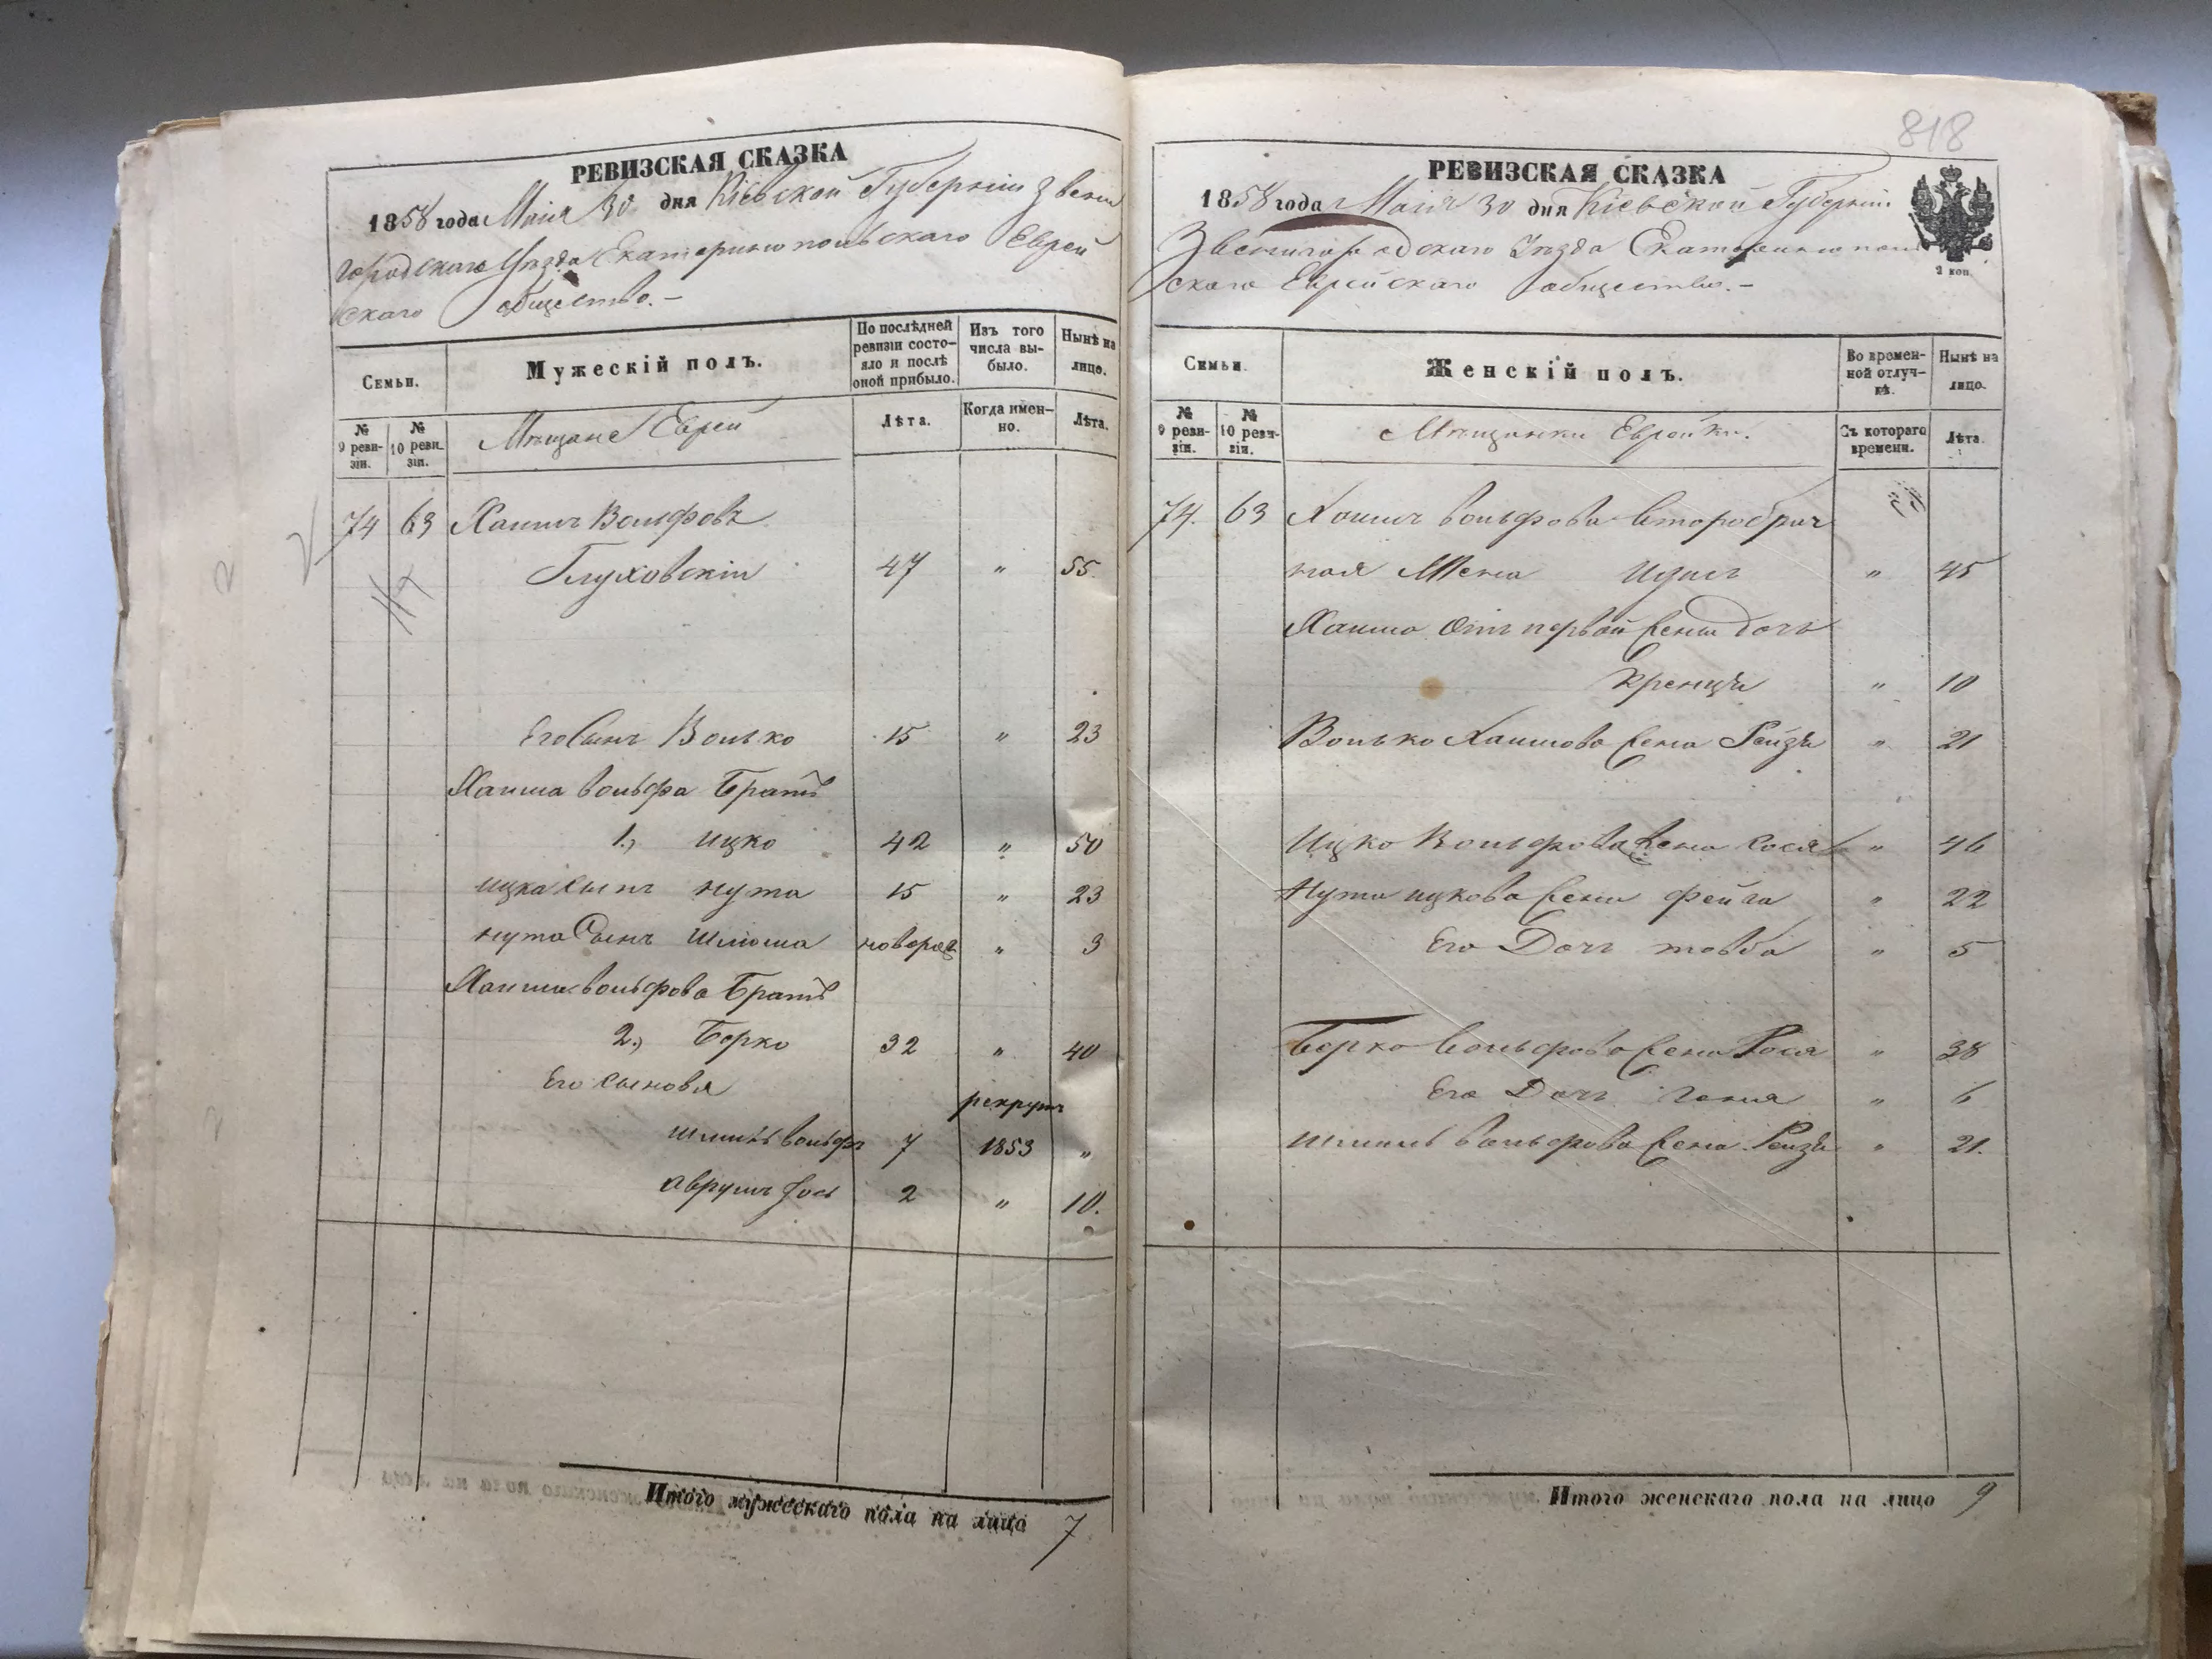 РЕВИЗСКАЯ СКАЗКА
1858 года Маія 30 дня Кіевской Губерніи Звени
городскаго Уѣзда Екатеринопольскаго Еврей
скаго общества.-
Семьи.
Мужескій полъ.
По послѣдней ревизіи состо-
яло и послѣ
оной прибыло.
Изъ того
числа вы-
было.
Нынѣ на
лицо.
№
9 реви-
зіи.
№
10 реви-
зіи.
Мѣщане Евреи
Лѣта.
Когда имен-
но.
Лѣта.
74 63 Хаимъ Вольфовъ
Глуховскій 47 " 55.
Его Сынъ Волько 15 " 23
Хаима Вольфа Братъ
1., Ицко 42 " 50
Ицка Сынъ Нута 15 " 23
Нута Сынъ Шлиома новорож " 3
Хаима Вольфова Братъ
2., Берко 32 " 40
Его Сыновя
рекрутъ
Шмиль Вольфъ 7 1853 "
Аврумъ Іось 2 " 10.
Итого мужескаго пола на лицо 7
818
РЕВИЗСКАЯ СКАЗКА
1858 года Маія 30 дня Кіевской Губерніи
Звенигородскаго Уѣзда Екатеринополь
скаго Еврейскаго общества.-
2 коп.
Семьи.
Женскій полъ.
Во времен-
ной отлуч-
кѣ.
Нынѣ на
лицо.
№
9 реви-
зіи.
№
10 реви-
зіи.
Мѣщанки Еврейки.
Съ котораго
времени.
Лѣта.
74. 63 Хаимъ Вольфова Второбрач
ная Жена " 45
Хаима отъ первой жены дочь
Кренця " 10
Волько Хаимова жена Рейзя " 21
Ицко Вольфова жена Сося " 46
Нута Ицкова жена Фейга " 22
Его Дочь Товба " 5
Берко Вольфова жена Рося " 38
Его Дочь Геня " 6
Шмиль Вольфова жена Рейзя " 21.
Итого женскаго пола на лицо 9